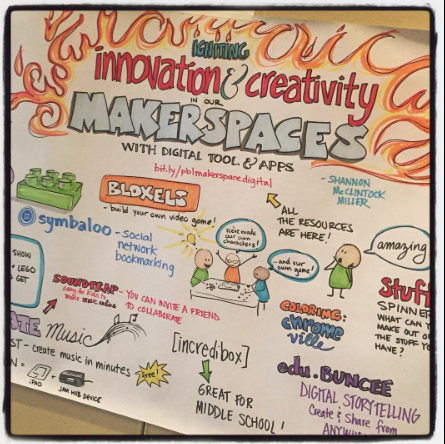 IGNITING
innovation & creativity
IN OUR
MAKERSPACES
WITH DIGITAL TOOL & APPS
bit.ly/pblmakerspacedigital
- SHANNON
McCLINTOCK
MILLER
BLOXELS
- build your own video game!
ALL
THE RESOURCES
ARE HERE!
symbaloo - social
network
bookmarking
we've made
our own
characters!
...and our
own game!
amazing
SHOW
LEGO
GET
SOUNDTRAP -
music online
- YOU CAN INVITE A FRIEND
TO COLLABORATE
COLORING:
chrome
ville
Stuff
SPINNER
WHAT CAN Y
MAKE OUT O
THE STUFF YO
HAVE?
ATE Music
ST - create music in minutes
free!
iPAD
JAM HUB DEVICE
[incredibox]
GREAT FOR
MIDDLE SCHOOL!
edu.BUNCEE
DIGITAL STORYTELLING
Create & share from